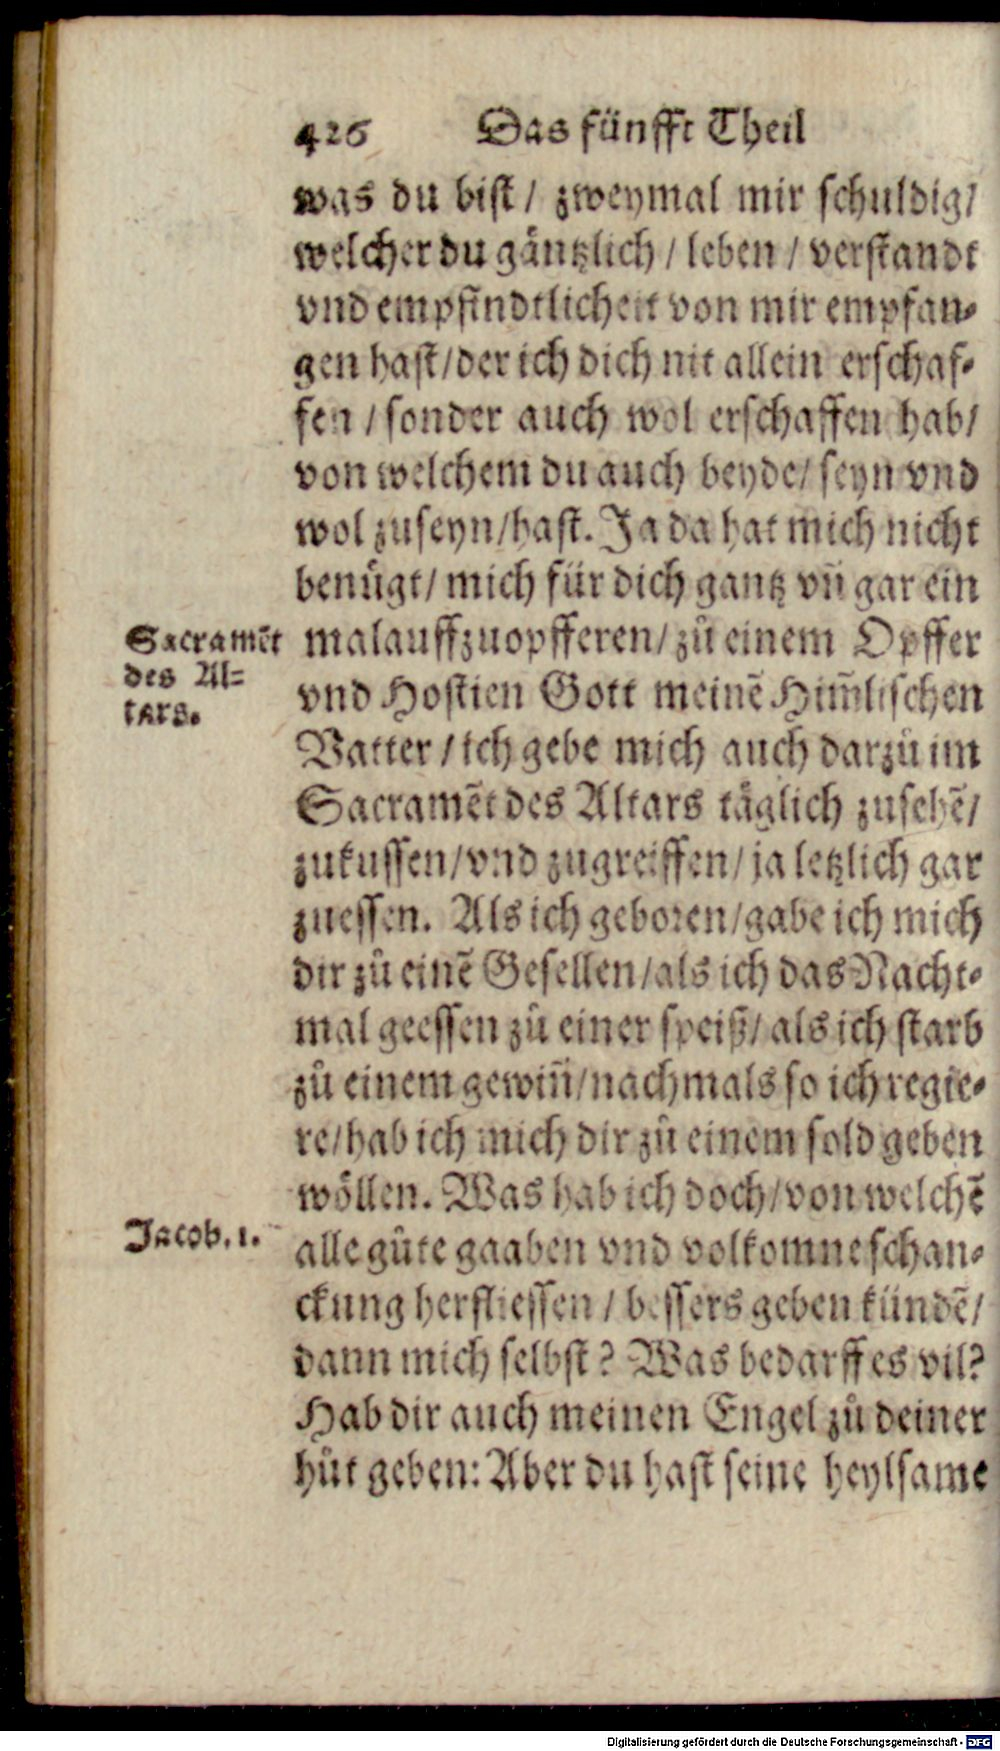 426 Das fünfft Theil
was du bist / zweymal mir schuldig/
welcher du gäntzlich / leben / verstandt
vnd empfindtlicheit von mir empfan-
gen hast/der ich dich nit allein erschaf-
fen / sonder auch wol erschaffen hab/
von welchem du auch beyde/ seyn vnd
wol zuseyn/hast. Ja da hat mich nicht
benügt/ mich für dich gantz vñ gar ein
Sacramēt
des Al-
tars.
malauffzuopfferen/ zů einem Opffer
vnd Hostien Gott meinē Him̃lischen
Vatter / ich gebe mich auch darzů im
Sacramēt des Altars täglich zusehē/
zukussen/vnd zugreiffen/ ja letzlich gar
zuessen. Als ich geboren/gabe ich mich
dir zů einē Gesellen/als ich das Nacht-
mal geessen zů einer speiß/ als ich starb
zů einem gewiñ/nachmals so ich regie-
re/hab ich mich dir zů einem sold geben
wöllen. Was hab ich doch/von welchē
Jacob. 1.
alle gůte gaaben vnd volkomne schan-
ckung herfliessen / bessers geben kündē/
dann mich selbst? Was bedarff es vil?
Hab dir auch meinen Engel zů deiner
hůt geben: Aber du hast seine heylsame
Digitalisierung gefördert durch die Deutsche Forschungsgemeinschaft - DFG